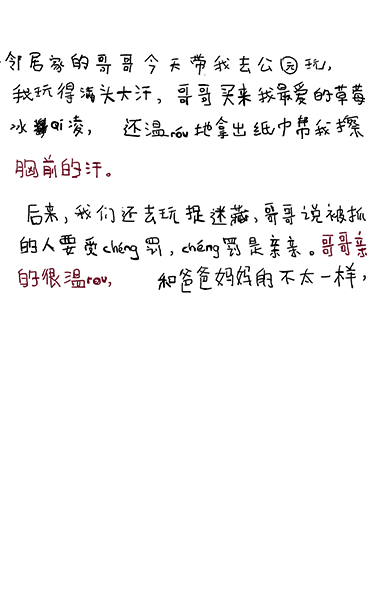 邻居家的哥哥今天带我去公园玩,
我玩得满头大汗，哥哥买来我最爱的草莓
冰qi凌，还温róu地拿出纸巾帮我擦
胸前的汗。
后来,我们还去玩捉迷藏,哥哥说被抓
的人要受chéng罚,chéng罚是亲亲。哥哥亲
的很温rou,和爸爸妈妈的不太一样,